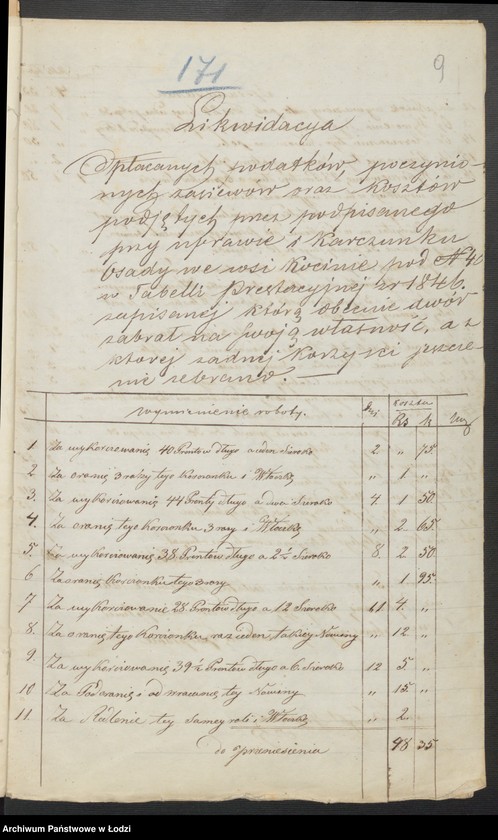 171
9
Likwidacya
Opłacanych podatków, poczynio-
nych zasiewow oraz Kosztów
podjętych przez podpisanego
przy uprawie i Karczunku
Osady we wsi Kocinie pod N 40
w Tabelli Prestacyjnej z r 1846.
zapisanej którą obecnie dwór
zabrał na swoją własność, a z
ktorej zadnej Korzysci jeszcze
nie zebrano.
Wymienienie roboty. Dni Koszta Rs k
1. Za wykorczowanie 40 Prentow długo a ieden Szeroko 2 " 75.
2 Za oranie 3 razy tego Korcunku i Włoukę " 1 "
3. Za wykorczowanie 44 Prenty długo a dwa Szeroko 4 1 50.
4. Za oranie tego Korcunku 3 razy i Włoukę " 2 65
5. Za wykorczowanie 38 Prentow długo a 2½ Szeroko 8 2 50
6 Za oranie Korcunku tego 3 razy " 1 95.
7 Za wykorczowanie 28 Prentow długo a 12 Szeroko 11 4. "
8. Za oranie tego Korcunku, raz ieden, takiey Nowiny " 12 "
9. Za wykorczowanie 39½ Prentow długo a 6. Szeroko 12 5 "
10 Za Podoranie i odwracanie tey Nowiny " 15. "
11. Za Radlenie tey Samey roli i Włoukę " 2.
do przeniesienia 48 35
Archiwum Państwowe w Łodzi